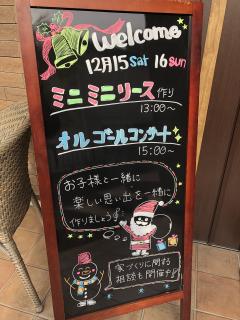 Welcome
12月15 Sat 16 sun
ミニミニリース作り
13:00〜
オルゴールコンサート
15:00〜
お子様と一緒に
楽しい思い出を一緒に
作りましょう
家づくりに関する
相談も開催中!!